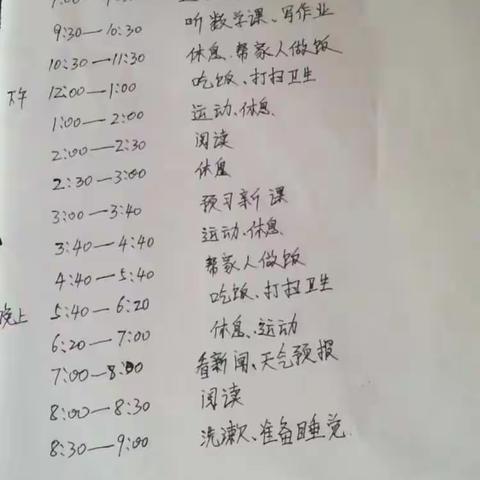 9:30—10:30 听数学课、写作业
10:30—11:30 休息、帮家人做饭
下午 12:00—1:00 吃饭、打扫卫生
1:00—2:00 运动、休息
2:00—2:30 阅读
2:30—3:00 休息
3:00—3:40 预习新课
3:40—4:40 运动、休息
4:40—5:40 帮家人做饭
晚上 5:40—6:20 吃饭、打扫卫生
6:20—7:00 休息、运动
7:00—8:00 看新闻、天气预报
8:00—8:30 阅读
8:30—9:00 洗漱、准备睡觉